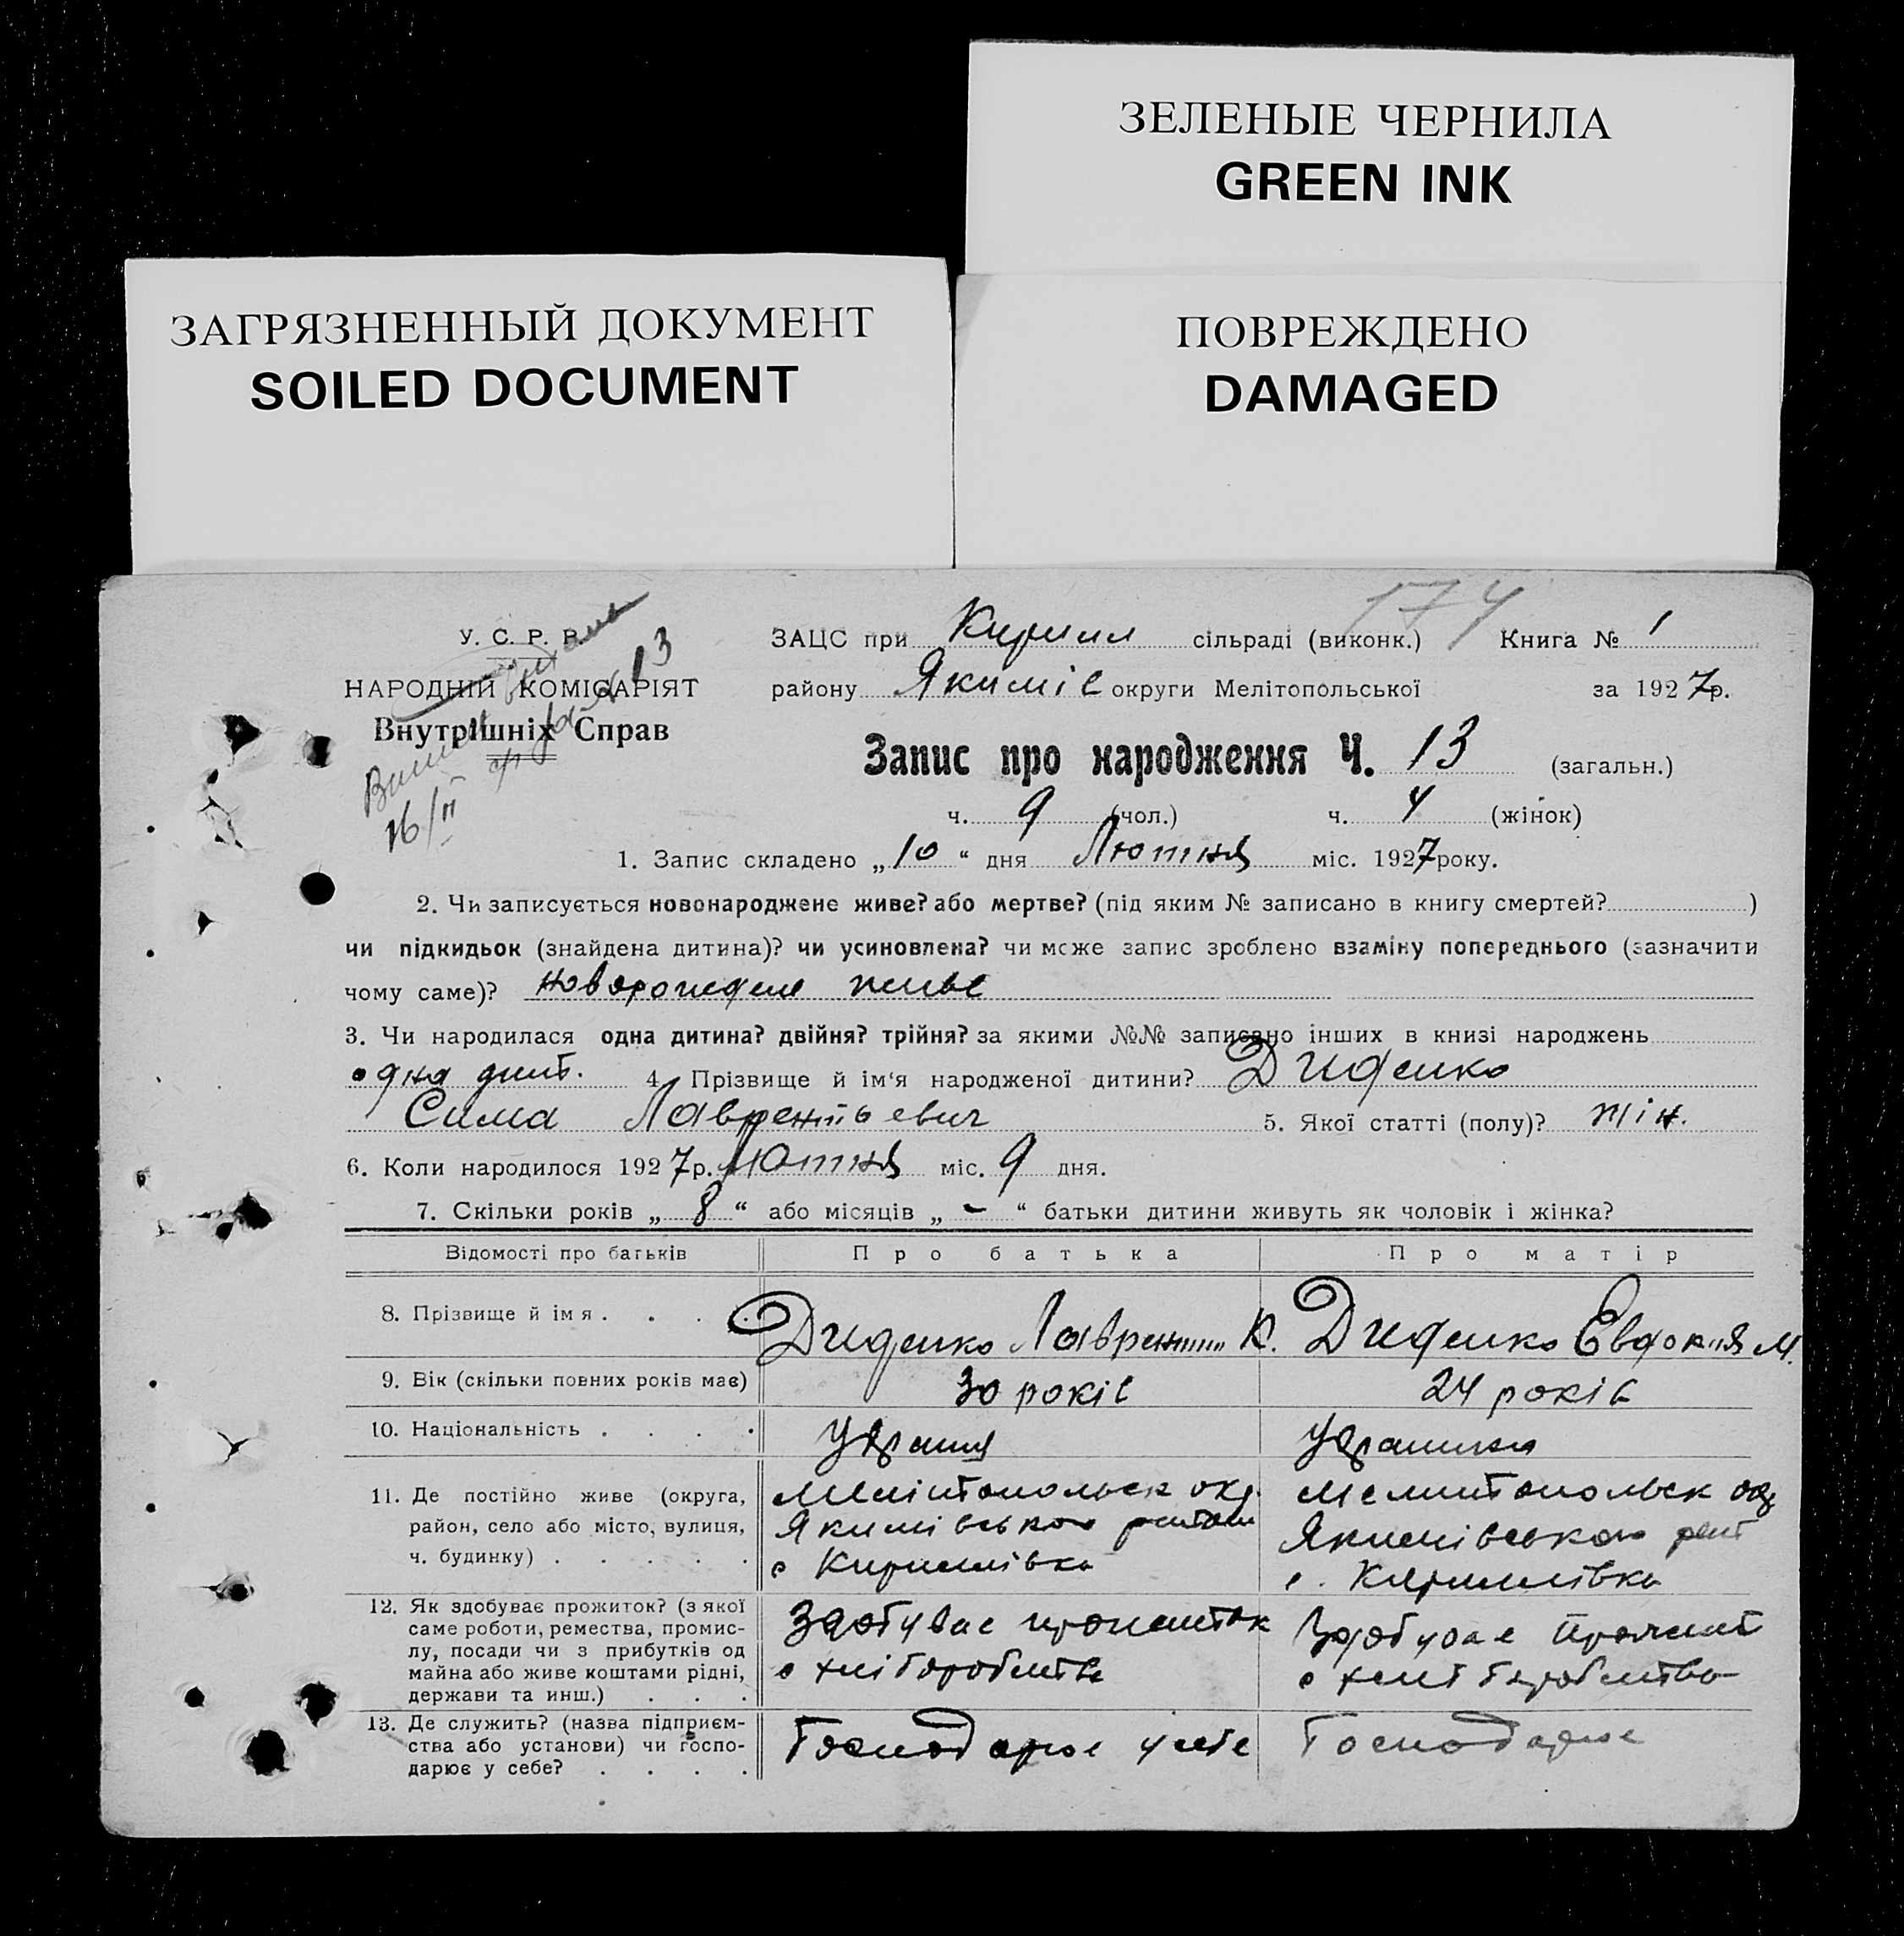 ЗЕЛЕНЫЕ ЧЕРНИЛА
GREEN INK
ЗАГРЯЗНЕННЫЙ ДОКУМЕНТ
SOILED DOCUMENT
ПОВРЕЖДЕНО
DAMAGED
174
У. С. Р. Р.
НАРОДНІЙ КОМІСАРІЯТ
Внутрішніх Справ
13
16/II
ЗАЦС при Кирилл сільраді (виконк.) Книга № 1
району Якимів округи Мелітопольської за 1927р.
Запис про народження Ч. 13 (загальн.)
ч. 9 (чол.) ч. 4 (жінок)
1. Запис складено „10“ дня Лютня міс. 1927 року.
2. Чи записується новонароджене живе? або мертве? (під яким № записано в книгу смертей? )
чи підкидьок (знайдена дитина)? чи усиновлена? чи може запис зроблено взаміну попереднього (зазначити
чому саме)? живе
3. Чи народилася одна дитина? двійня? трійня? за якими №№ записано інших в книзі народжень
одна дит. 4. Прізвище й ім‘я народженої дитини? Диденко
Сима Лаврентьевич 5. Якої статті (полу)? жін.
6. Коли народилося 1927р. Лютня міс. 9 дня.
7. Скільки років „8“ або місяців „-“ батьки дитини живуть як чоловік і жінка?
Відомості про батьків Про батька Про матір
8. Прізвище й ім я . . . . Диденко Лаврентий К. Диденко Евдокия М.
9. Вік (скільки повних років має) 30 років 24 років
10. Національність . . . .
11. Де постійно живе (округа,
район, село або місто, вулиця,
ч. будинку) . . . . .
Мелітопольск окр.
Якимівського район
с Кириллівка
Мелитопольск окр
Якимівського рай
с. Кириллівка
12. Як здобуває прожиток? (з якої
саме роботи, ремества, промис-
лу, посади чи з прибутків од
майна або живе коштами рідні,
держави та инш.) . . .
Здобуває прожиток
с хліборобства
Здобуває прожит
с хлиборобства
13. Де служить? (назва підприєм-
ства або установи) чи госпо-
дарює у себе? . . . .
Господарює у себе
Господарює